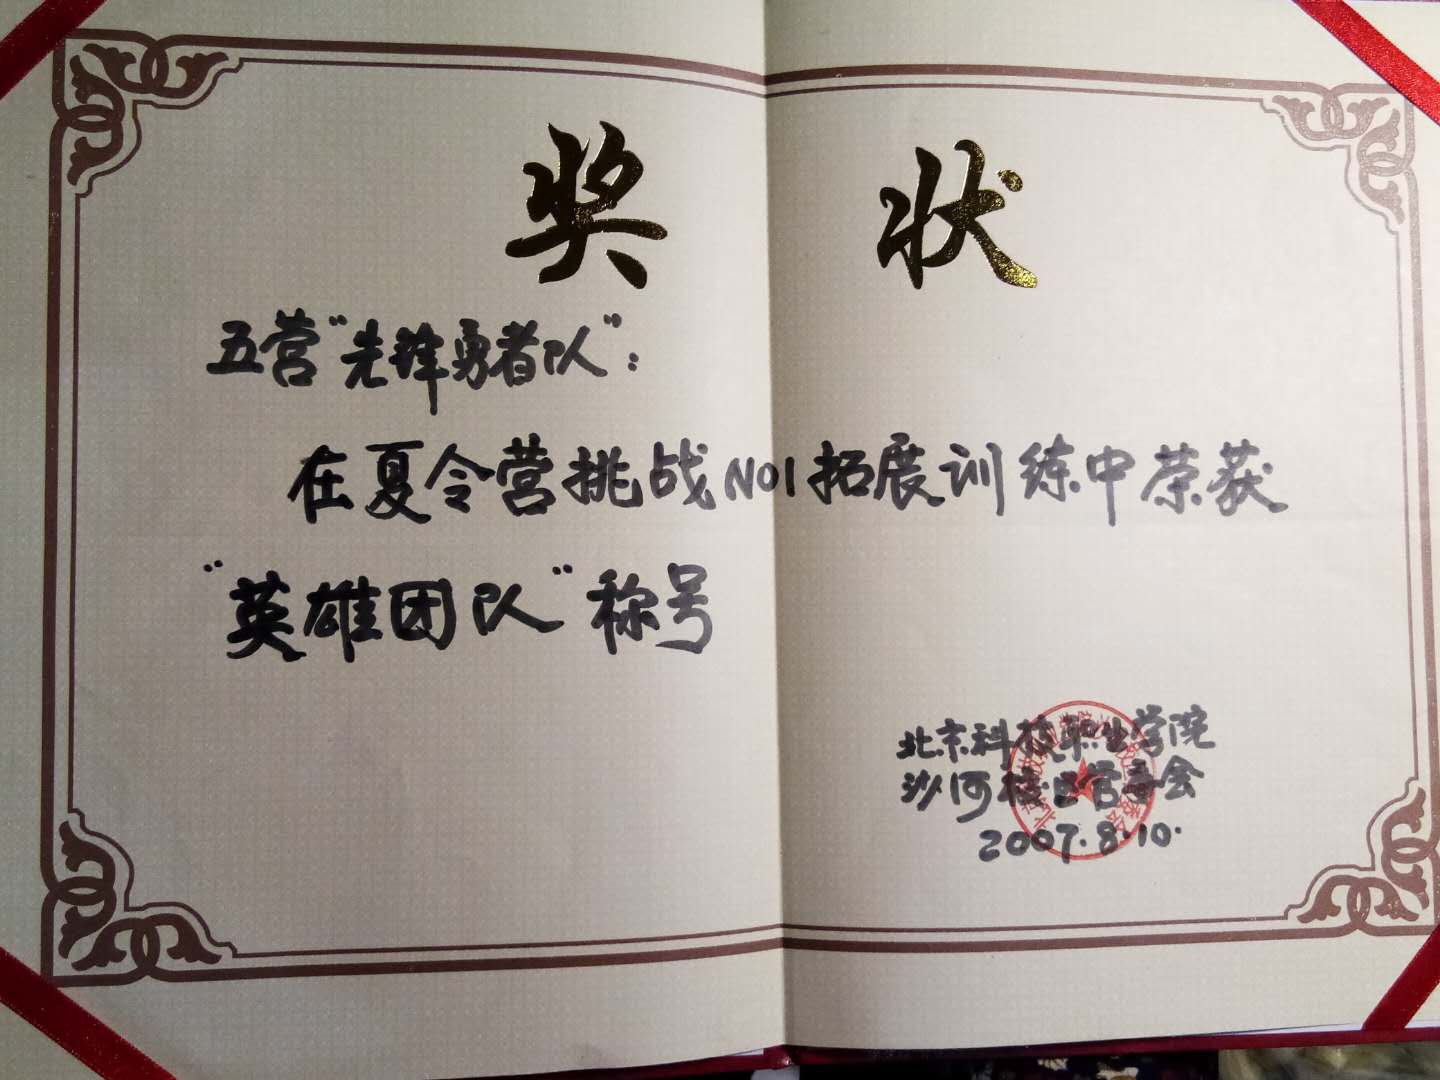 奖状
五营“先锋勇者队”：
在夏令营挑战NO1拓展训练中荣获
“英雄团队”称号
北京科技职业学院
沙河校区管委会
2007.8.10.